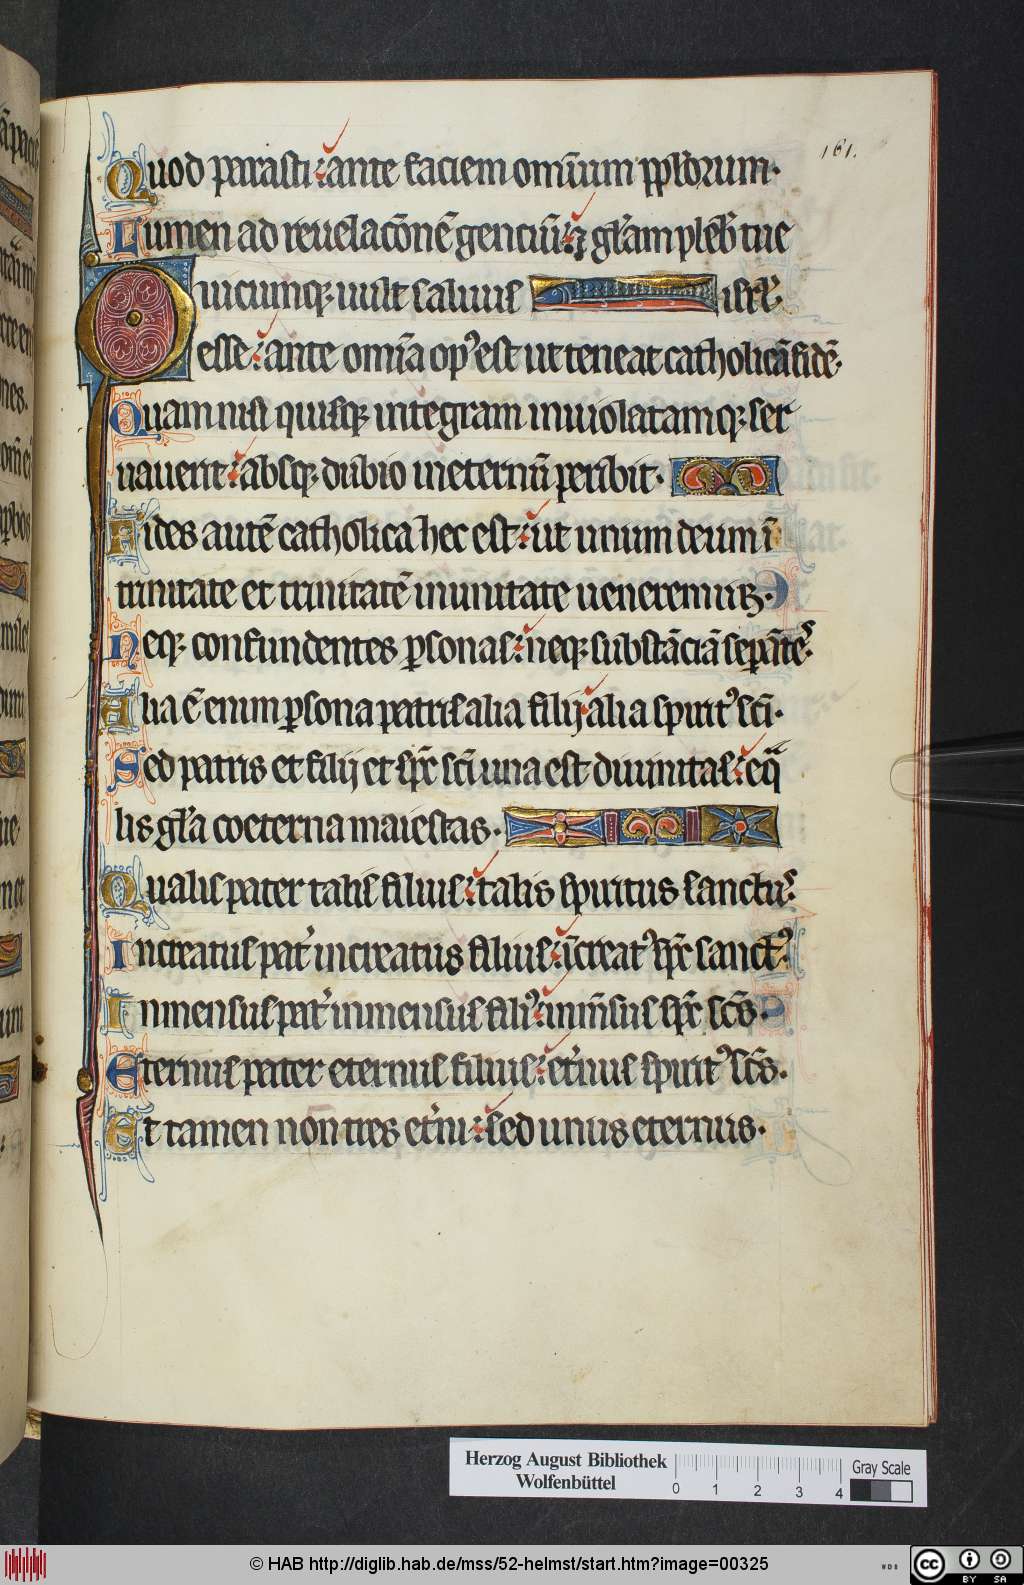 161.
Quod parasti ante faciem omīum pplorum.
Lumen ad reuelacōnē genciū: ⁊ gl̄am pleb̄ tue
Quicumq; uult saluus isrl̄.
esse: ante omīa op᷒ est ut teneat catholicā fidē.
Quam nisi quisq; integram inuiolatamq; ser
uauerit: absq; dubio ineternū peribit.
Fides autē catholica hec est: ut unum deum ī
trinitate et trinitatē inunitate ueneremur.
Neq; confundentes ꝑsonas: neq; substāciā sepātes.
Alia ē enim ꝑsona patris alia filij alia spirit᷒ sc̄i.
Sed patris et filij et sp̄c sc̄i una est diuinitas: eq̄
lis gl̄a coeterna maiestas.
Qualis pater talis filius: talis spiritus sanctus.
Increatus pat̄ increatus filius: īcreat᷒ sp̄c sanct᷒.
Inmensus pat̄ inmensus fili᷒: inm̄sus sp̄c sc̄s.
Eternus pater eternus filius: et̄nus spirit᷒ sc̄s.
Et tamen non tres et̄ni: sed unus eternus.
Herzog August Bibliothek
Wolfenbüttel
Gray Scale
0 1 2 3 4
© HAB http://diglib.hab.de/mss/52-helmst/start.htm?image=00325
WDB
cc BY SA